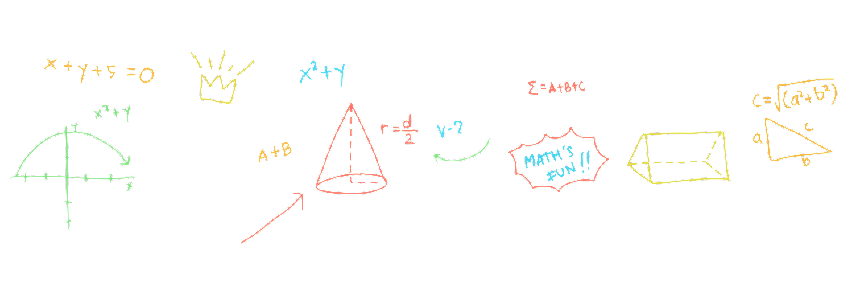 x+y+5=0
x²+y
x²+y
Y
x
A+B
r=d/2
V-?
Σ=A+B+C
MATH'S
FUN!!
C=√(a²+b²)
a
c
B